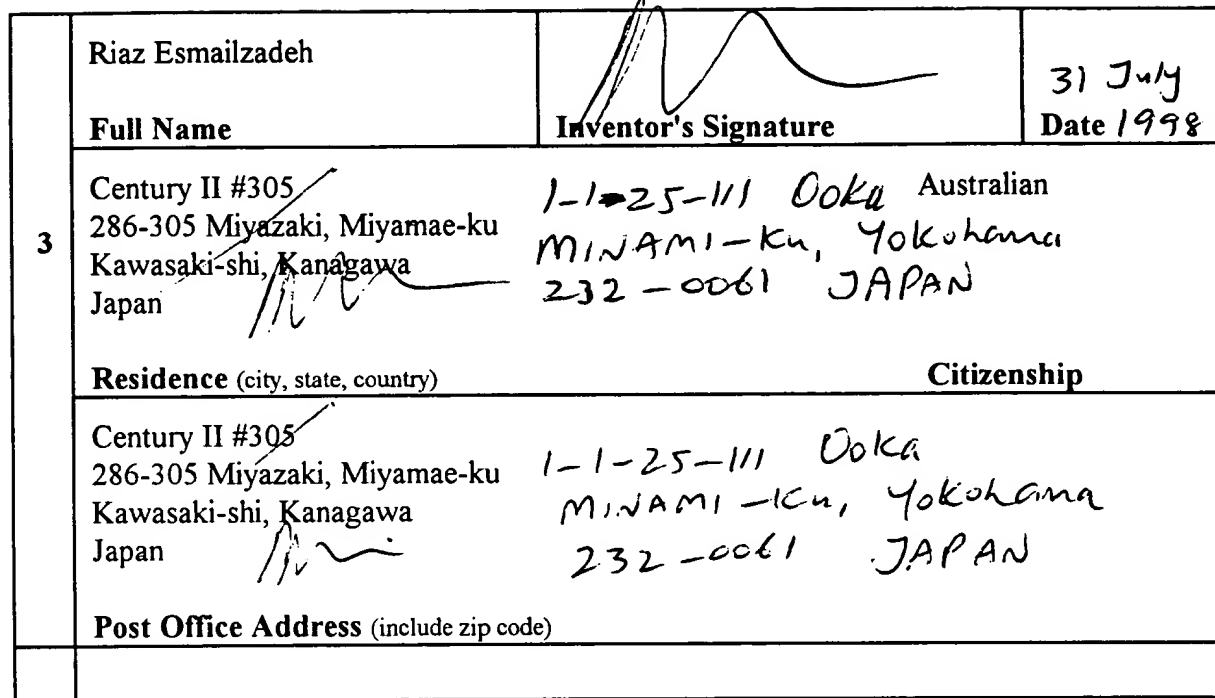 Riaz Esmailzadeh
31 July
Full Name
Inventor's Signature
Date 1998
3
Century II #305
286-305 Miyazaki, Miyamae-ku
Kawasaki-shi, Kanagawa
Japan
1-1-25-111 Ooka
MINAMI-Ku, Yokohama
232-0061 JAPAN
Australian
Residence (city, state, country)
Citizenship
Century II #305
286-305 Miyazaki, Miyamae-ku
Kawasaki-shi, Kanagawa
Japan
1-1-25-111 Ooka
MINAMI-Ku, Yokohama
232-0061 JAPAN
Post Office Address (include zip code)